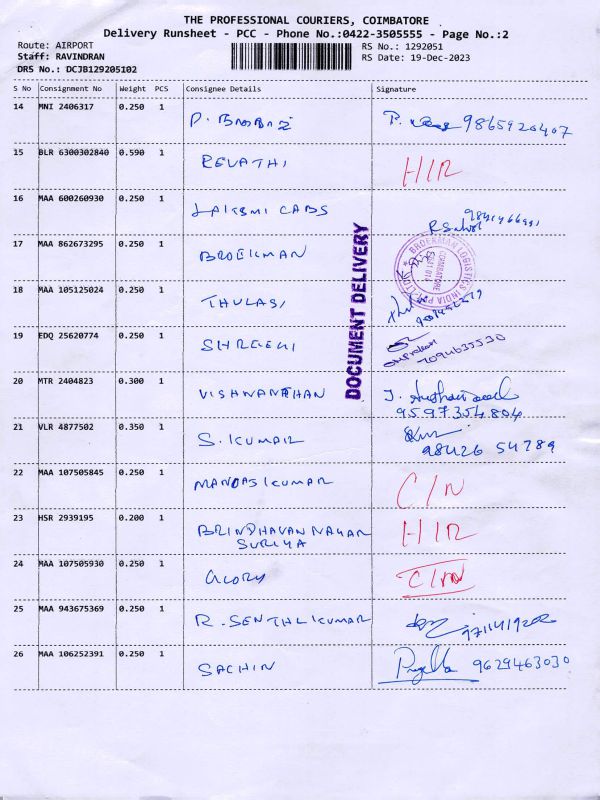 THE PROFESSIONAL COURIERS, COIMBATORE
Delivery Runsheet - PCC - Phone No.:0422-3505555 - Page No.:2
Route: AIRPORT
RS No.: 1292051
Staff: RAVINDRAN
RS Date: 19-Dec-2023
DRS No.: DCJB129205102
S No Consignment No Weight PCS Consignee Details Signature
14 MNI 2406317 0.250 1 P. 9865920407
15 BLR 6300302840 0.590 1 REVATHI H/R
16 MAA 600260930 0.250 1 LAKSMI CABS
17 MAA 862673295 0.250 1 BROEKMAN
BROEKMAN LOGISTICS INDIA PVT. LTD.
COIMBATORE
641 014
18 MAA 105125024 0.250 1 THULASI
DOCUMENT DELIVERY
19 EDQ 25620774 0.250 1 SHREEKI 7094635530
20 MTR 2404823 0.300 1 VISHWANATHAN J.
9597354804
21 VLR 4877502 0.350 1 S. KUMAR
98426 54789
22 MAA 107505845 0.250 1 MANOJ KUMAR C/N
23 HSR 2939195 0.200 1 BRINDHAVAN NAGAR H/R
SURIYA
24 MAA 107505930 0.250 1 GLORY C/N
25 MAA 943675369 0.250 1 R. SENTHLIKUMAR
26 MAA 106252391 0.250 1 SACHIN 9629463030